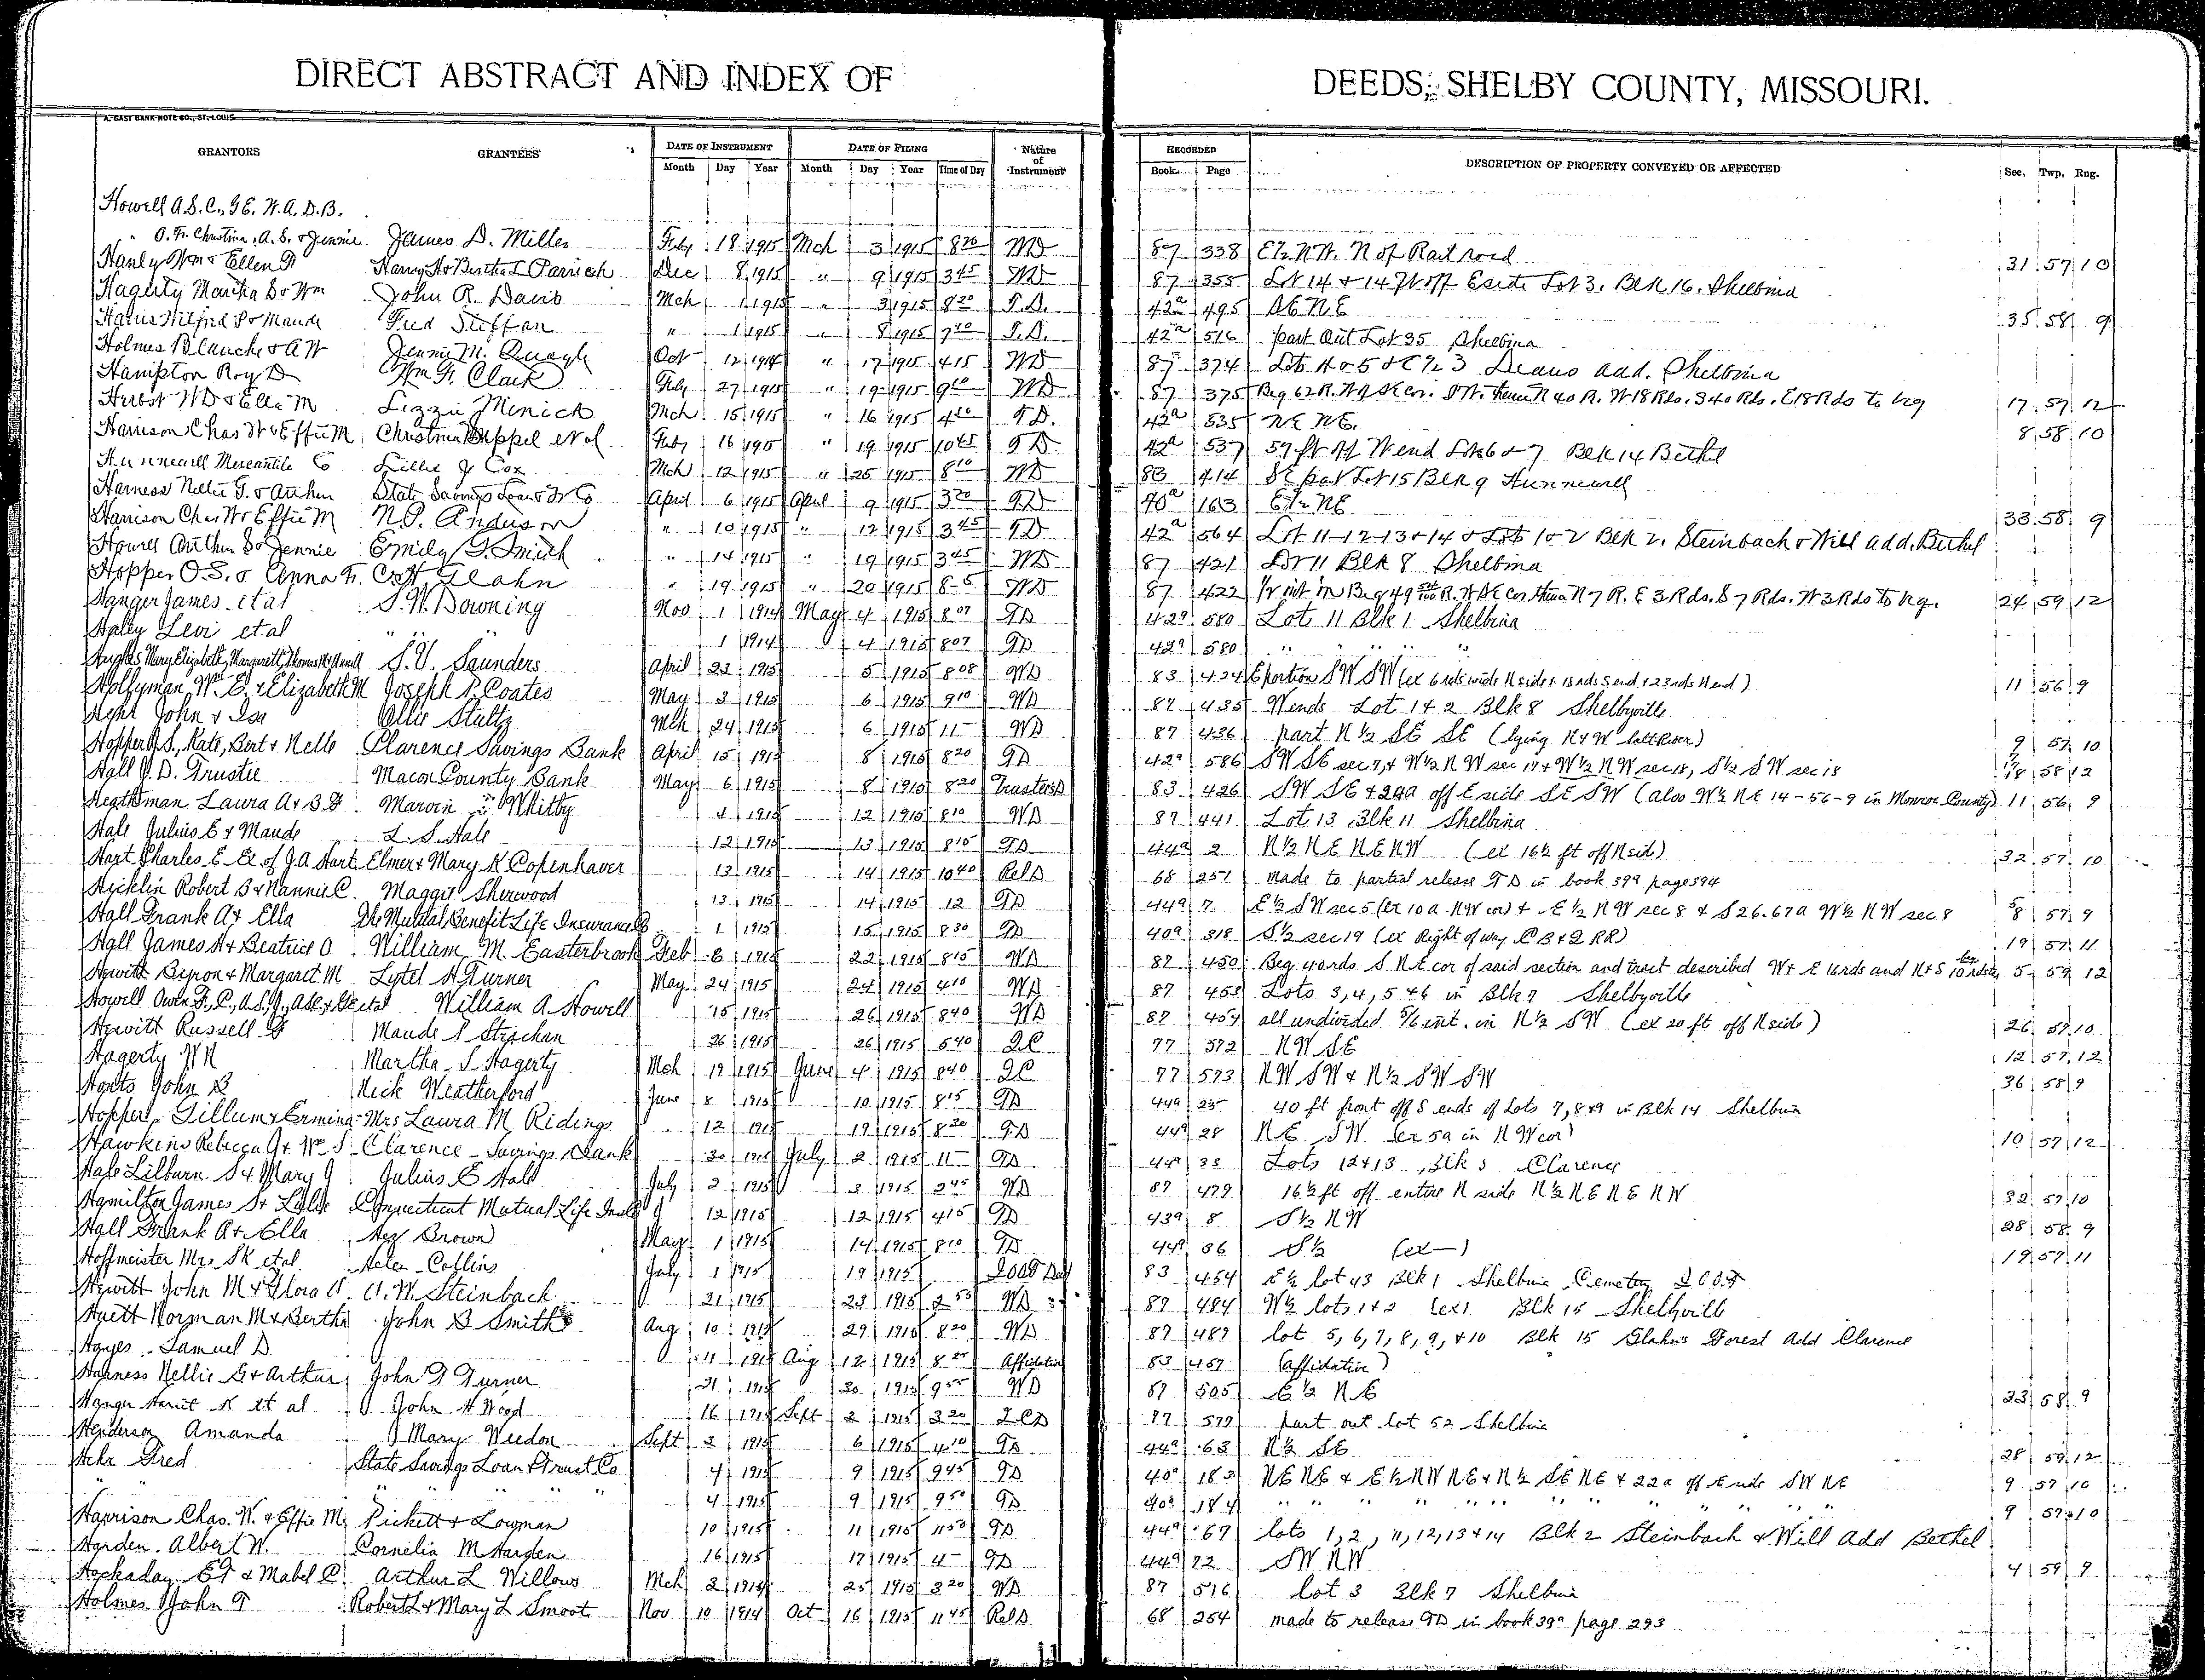 DIRECT ABSTRACT AND INDEX OF DEEDS, SHELBY COUNTY, MISSOURI.
A. GAST BANK-NOTE CO., ST. LOUIS.
GRANTORS GRANTEES DATE OF INSTRUMENT DATE OF FILING Nature of Instrument RECORDED DESCRIPTION OF PROPERTY CONVEYED OR AFFECTED Sec. Twp. Rng.
Month Day Year Month Day Year Time of Day Book Page
Howell A.S.C., G E. W.A. D.B.
" O. F. Christina, A. S. & Jennie James D. Miller Feby 18 1915 Mch 3 1915 8 20 WD 87 338 E½ NW. N of Rail road 31 57 10
Hanly Wm & Ellen Harry H & Bertha L Parrish Dec 8 1915 " 9 1915 3 45 WD 87 355 Lot 14 & 14 ft off E side Lot 3. Blk 16. Shelbina
Hagerty Martha S & Wm John R. Davis Mch 1 1915 " 3 1915 8 20 T.D. 42a 495 SE NE 35 58 9
Maude Fred Steffan " 1 1915 " 8 1915 T.D. 42a 516 part Out Lot 35 Shelbina
Holmes Blanche & A W Jennie M. Quagh Oct 12 1914 " 17 1915 4 15 WD 87 374 Deans add. Shelbina
Hampton Roy D Wm F. Clark Feby 27 1915 " 19 1915 9 WD 87 375 Beg 62 R. thence N 40 R. W 18 Rds. S 40 Rds. E 18 Rds to beg 17 57 12
Herbst W D & Ella M Lizzie Minich Mch 15 1915 " 16 1915 T.D. 42a 535 NE NE. 8 58 10
Harrison Chas W & Effie M Christina et al Feby 16 1915 " 19 1915 10 45 TD 42a 537 59 ft off W end Lots 6 & 7 Blk 14 Bethel
Hunnewell Mercantile Co Lillie J Cox Mch 12 1915 " 25 1915 8 10 WD 83 414 SE part Lot 15 Blk 9 Hunnewell
Harness Nellie G. & Arthur State Savings Loan & Tr Co April 6 1915 April 9 1915 3 20 TD 40a 163 E½ NE 33 58 9
Harrison Chas W & Effie M N.P. Anderson " 10 1915 " 12 1915 3 45 TD 42a 564 Lot 11-12-13 & 14 & Lots 1 & 2 Blk 2. Steinbach & Will add. Bethel
Howell Arthur S & Jennie Emily T. Smith " 14 1915 " 19 1915 3 45 WD 87 421 Lot 11 Blk 8 Shelbina
Hopper O.S. & Anna F. Glahn " 19 1915 " 20 1915 8-5 WD 87 422 thence N 7 R. E 3 Rds. S 7 Rds. W 3 Rds to beg. 24 59 12
Hanger James et al S.W. Downing Nov 1 1914 May 4 1915 8 07 TD 42a 580 Lot 11 Blk 1 Shelbina
Haley Levi et al " " 1 1914 4 1915 8 07 TD 42a 580 " " " "
Hughes Mary Elizabeth, Margarett, Thomas S. Y. Saunders April 23 1915 5 1915 8 08 WD 83 424 E portion SW SW (ex 6 rds wide N side & 13 rds S end & 23 rds N end) 11 56 9
Hollyman Wm E. & Elizabeth M Joseph P. Coates May 3 1915 6 1915 9 10 WD 87 435 W ends Lot 1 & 2 Blk 8 Shelbyville
Hehr John & Isa Ollie Stultz Mch 24 1915 6 1915 11- WD 87 436 part N ½ SE SE (lying N & W Salt River) 9 57 10
Hopper O.S., Kate, Bert & Nelle Clarence Savings Bank April 15 1915 8 1915 8 20 TD 42a 586 SW SE sec 7, & W½ N W sec 17 & W½ N W sec 18, S½ SW sec 18 7 17 18 58 12
Hall J. D. Trustee Macon County Bank May 6 1915 8 1915 8 20 Trustees D 83 426 SW SE & 24a off E side SE SW (also W½ NE 14-56-9 in Monroe County) 11 56 9
Heathman Laura A & B F Marvin Whitby 4 1915 12 1915 8 10 WD 87 441 Lot 13 Blk 11 Shelbina
Hale Julius E & Maude L. S. Hale 12 1915 13 1915 8 15 TD 44a 2 N½ NE NE NW (ex 16½ ft off N side) 32 57 10
Hart Charles E Ex of J.A. Hart Elmer & Mary K Copenhaver 13 1915 14 1915 10 40 Rel D 68 251 made to partial release TD in book 39a page 394
Hicklin Robert B & Nannie C. Maggie Sherwood 13 1915 14 1915 12 TD 44a 7 E½ SW sec 5 (ex 10 a NW cor) & E½ NW sec 8 & S 26.67a W½ NW sec 8 5 8 57 9
Hall Frank A & Ella The Mutual Benefit Life Insurance Co 1 1915 15 1915 8 30 TD 40a 318 S½ sec 19 (ex Right of way C B & Q RR) 19 57 11
Hall James H & Beatrice O William M. Easterbrook Feb 6 1915 22 1915 8 15 WD 87 450 Beg 40 rds S NE cor of said section and tract described W & E 16 rds and N & S 10 rds to beg 5 59 12
Hewitt Byron & Margaret M Lytel H Turner May 24 1915 24 1915 4 10 WD 87 453 Lots 3, 4, 5 & 6 in Blk 7 Shelbyville
Howell Owen F, C, A.S, J, et al William A Howell 15 1915 26 1915 8 40 WD 87 457 all undivided 5/6 int. in N½ SW (ex 20 ft off N side) 26 57 10
Hewitt Russell G Maude P Strachan 26 1915 26 1915 5 40 QC 77 572 NW SE 12 57 12
Hagerty W N Martha S Hagerty Mch 19 1915 June 4 1915 8 40 QC 77 573 NW SW & N½ SW SW 36 58 9
Houts John B Nick Weatherford June 8 1915 10 1915 8 15 TD 44a 25 40 ft front off S ends of Lots 7, 8 & 9 in Blk 14 Shelbina
Hopper Gillum & Ermina Mrs Laura M Ridings 12 1915 19 1915 8 20 TD 44a 28 NE SW (ex 5a in NW cor) 10 57 12
Hawkins Rebecca J & Wm S Clarence Savings Bank 30 1915 July 2 1915 11- TD 44a 33 Lots 12 & 13 Blk 5 Clarence
Hale Lilburn S & Mary J Julius E Hale July 2 1915 3 1915 2 45 WD 87 479 16½ ft off entire N side N½ NE NE NW 32 57 10
Hamilton James S & Connecticut Mutual Life Ins Co 12 1915 12 1915 4 15 TD 43a 8 S½ NW 28 58 9
Hall Frank A & Ella Brown May 1 1915 14 1915 8 10 TD 44a 36 S½ (ex—) 19 57 11
Hoffmeister Mrs S K et al Helen Collins July 1 1915 19 1915 IOOF Deed 83 454 E½ lot 43 Blk 1 Shelbina Cemetery IOOF
Hewitt John M & Flora A. W. Steinbach 21 1915 23 1915 2 55 WD 87 484 W½ lots 1 & 2 (ex) Blk 15 Shelbyville
Huett Norman M & Bertha John B Smith Aug 10 1915 29 1915 8 20 WD 87 489 lot 5, 6, 7, 8, 9, & 10 Blk 15 Glahns Forest Add Clarence
Hayes Samuel D 11 1915 Aug 12 1915 Affidative 83 457 (affidative)
Harness Nellie G & Arthur John F Turner 21 1915 30 1915 9 55 WD 87 505 E½ NE 23 58 9
Hanger Harriet K et al John H Wood 16 1915 Sept 2 1915 3 20 QCD 77 579 part out lot 52 Shelbina
Henderson Amanda Mary Weedon Sept 3 1915 6 1915 4 10 TD 44a 63 N½ SE 28 59 12
Hehr Fred State Savings Loan & Trust Co 4 1915 9 1915 9 45 TD 40a 183 NE NE & E½ NW NE & N½ SE NE & 22a off E side SW NE 9 57 10
" " " " " " 4 1915 9 1915 9 50 TD 40a 184 " " " " " " 9 57 10
Harrison Chas. W. & Effie M. Pickett & Lowman 10 1915 11 1915 11 50 TD 44a 67 lots 1, 2, 11, 12, 13 & 14 Blk 2 Steinbach & Will Add Bethel
Harden Albert W. Cornelia M Harden 16 1915 17 1915 4- TD 44a 72 SW NW 4 59 9
Hockaday E F & Mabel C Arthur L Willows Mch 2 1915 25 1915 3 20 WD 87 516 lot 3 Blk 7 Shelbina
Holmes John T Robert L & Mary L Smoot Nov 10 1914 Oct 16 1915 11 45 Rel D 68 264 made to release TD in book 39a page 293